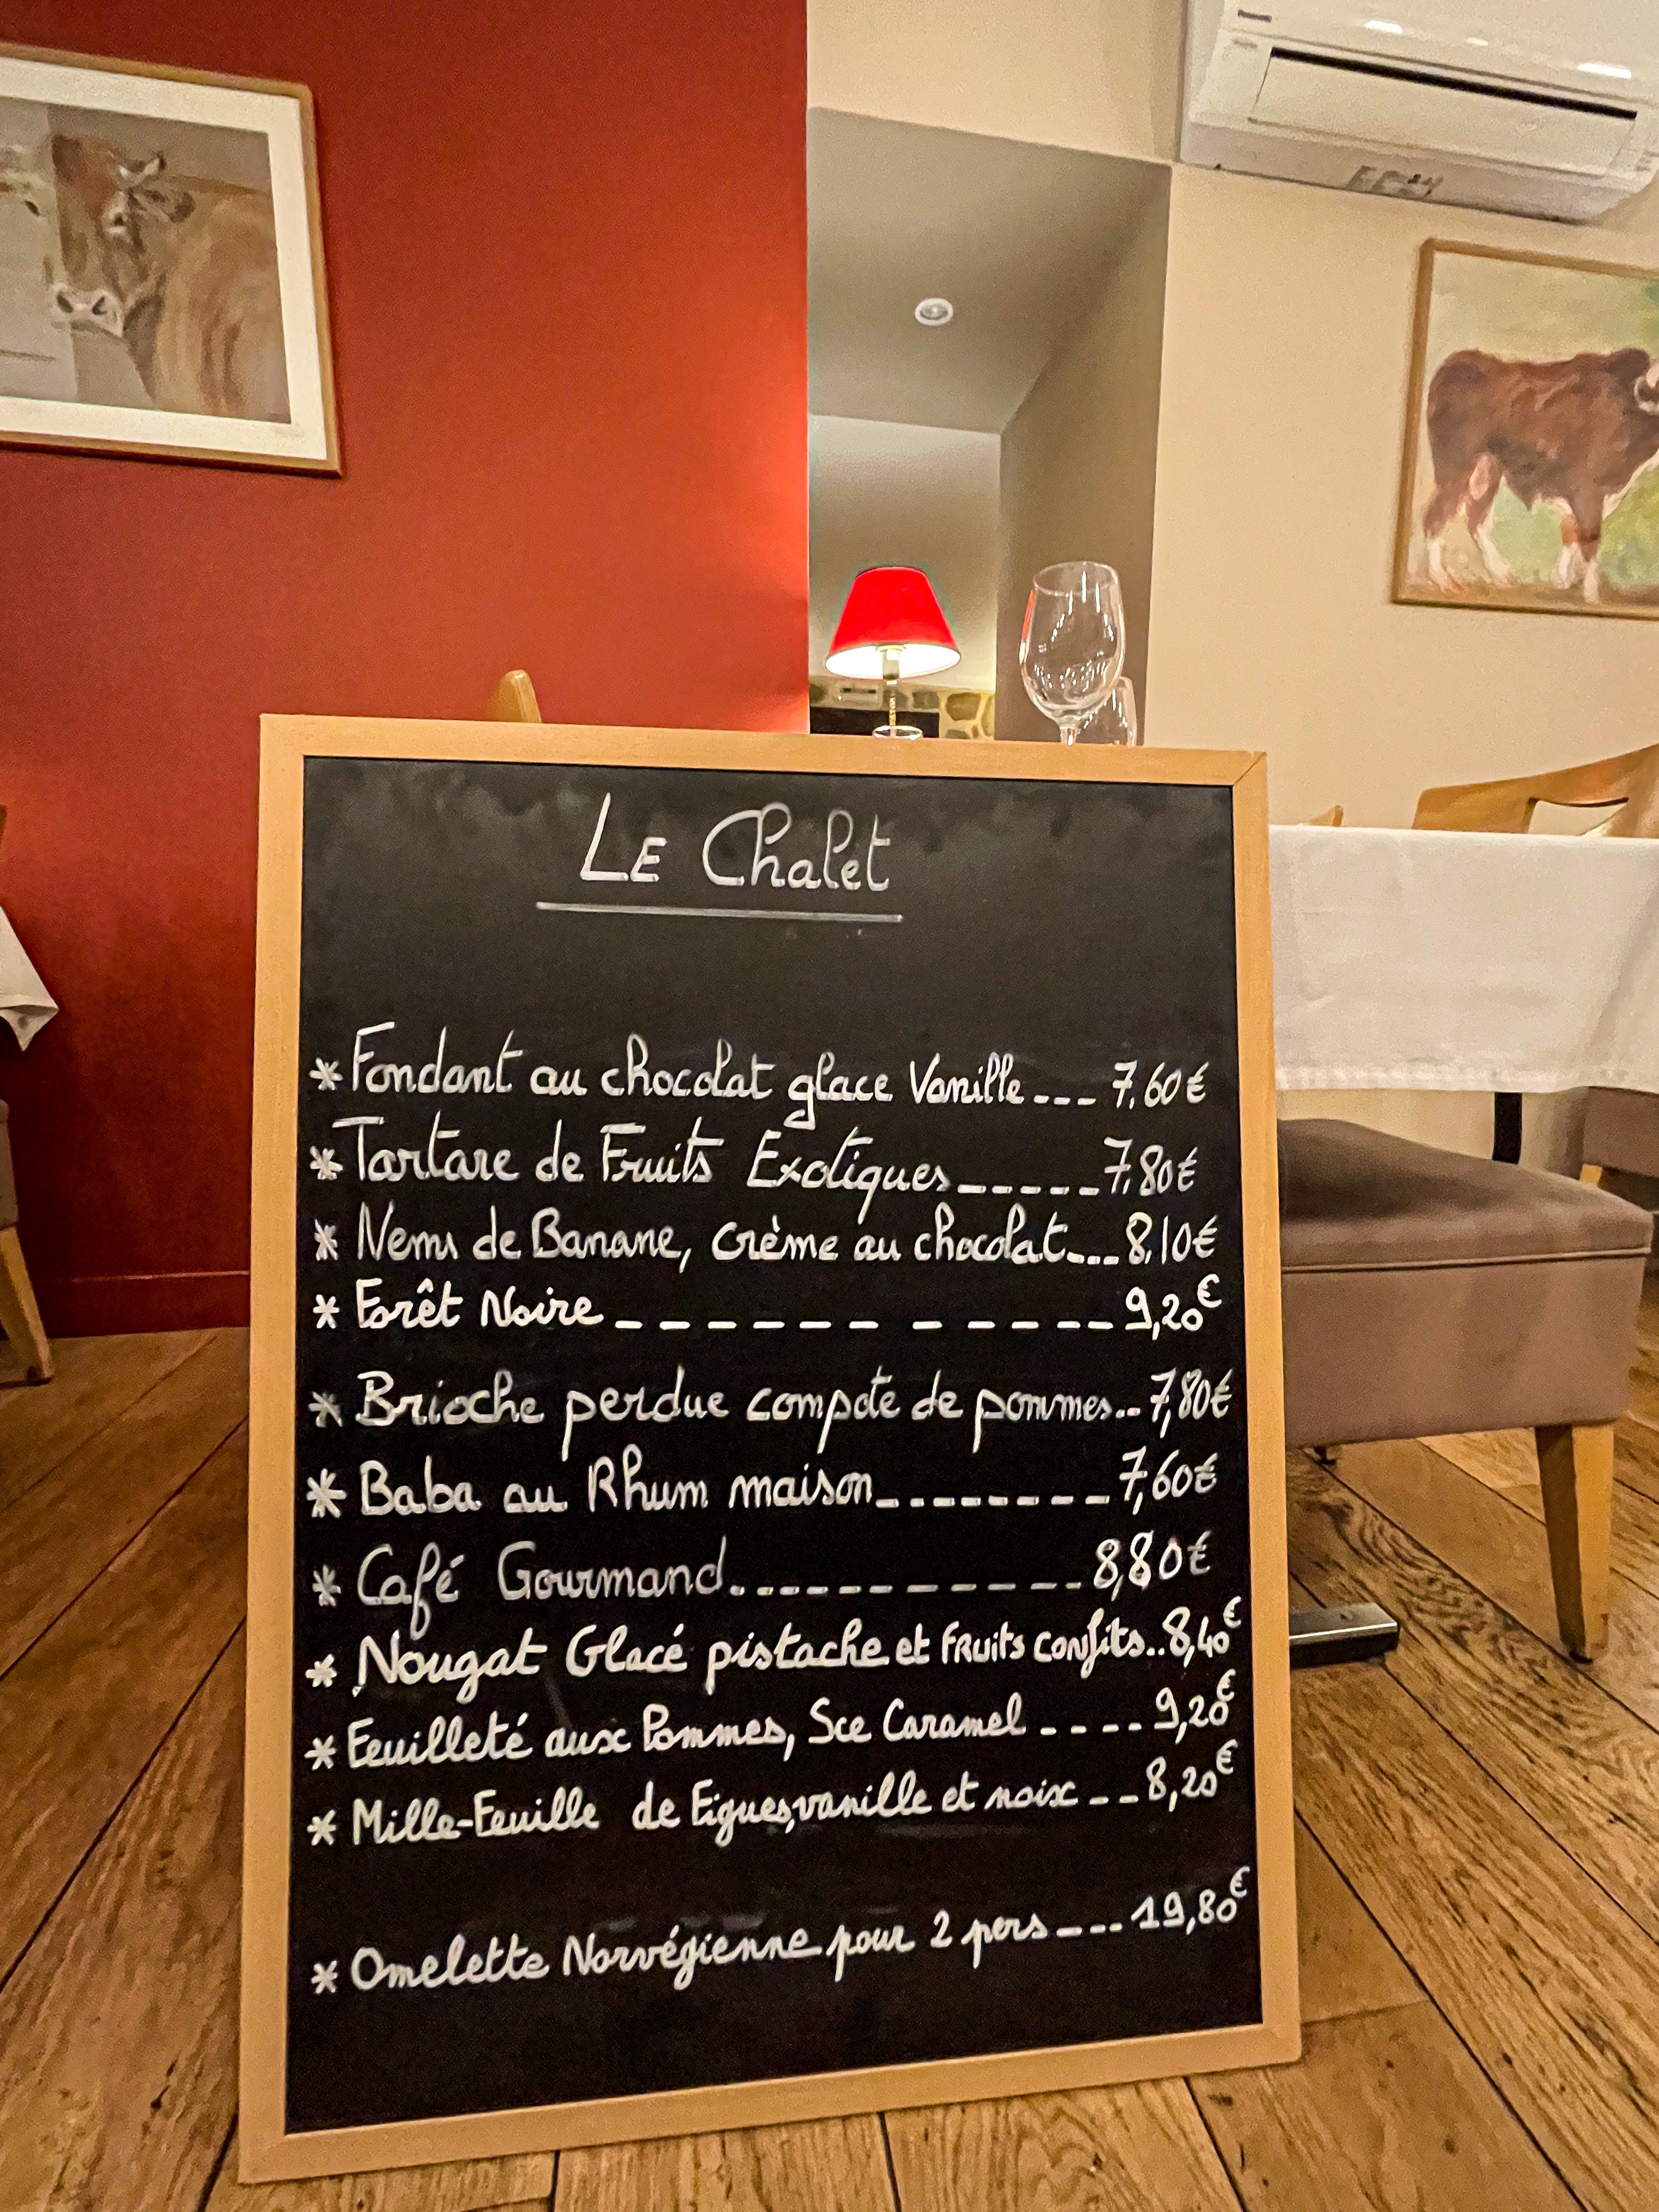 LE Chalet
* Fondant au chocolat glace Vanille --- 7.60€
* Tartare de Fruits Exotiques ----- 7.80€
* Nems de Banane, crème au chocolat --- 8,10€
* Forêt Noire - - - - - - - - - - -- 9,20€
* Brioche perdue compote de pommes .-- 7,80€
* Baba au Rhum maison -------- 7,60€
* Café Gourmand ----------- 8,80€
* Nougat Glacé pistache et FRuits confits .. 8,40€
* Feuilleté aux Pommes, Sce Caramel ---- 9,20€
* Mille-Feuille de Figues, vanille et noix -- 8,20€
* Omelette Norvégienne pour 2 pers ---- 19,80€